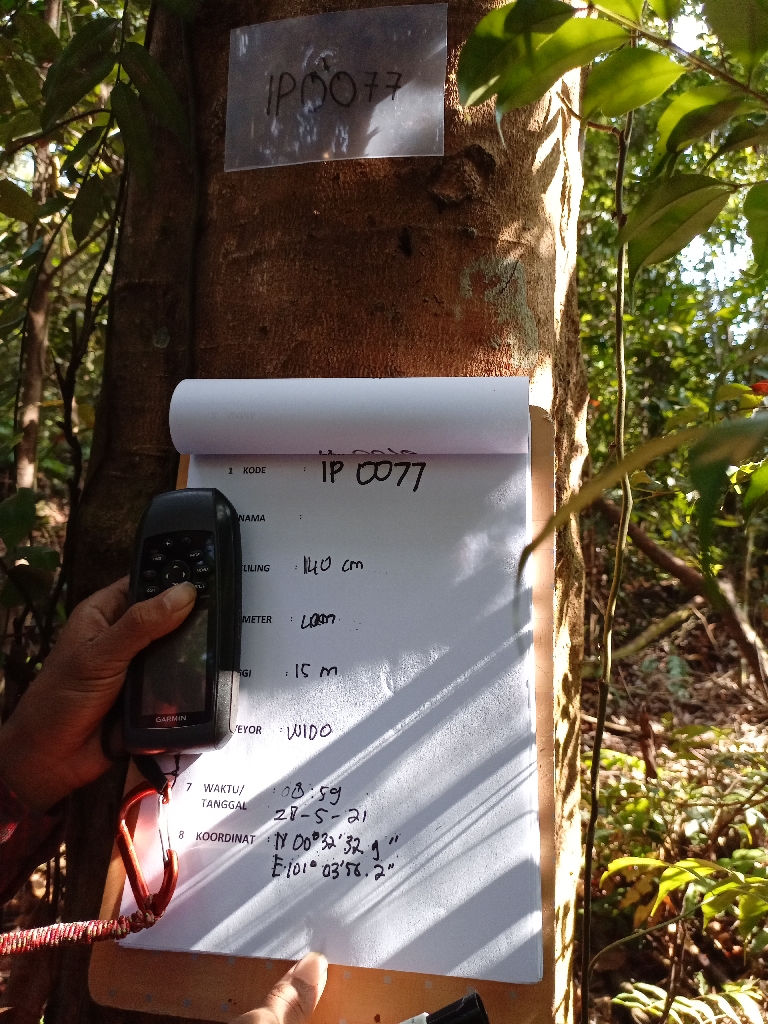 IP0077
1 KODE : IP 0077
NAMA :
LILING : 140 cm
METER :
GGI : 15 m
VEYOR : WIDO
7 WAKTU/ TANGGAL : 08:59
28-5-21
8 KOORDINAT : N 00° 32' 32.9"
E101° 03' 56.2"
GARMIN